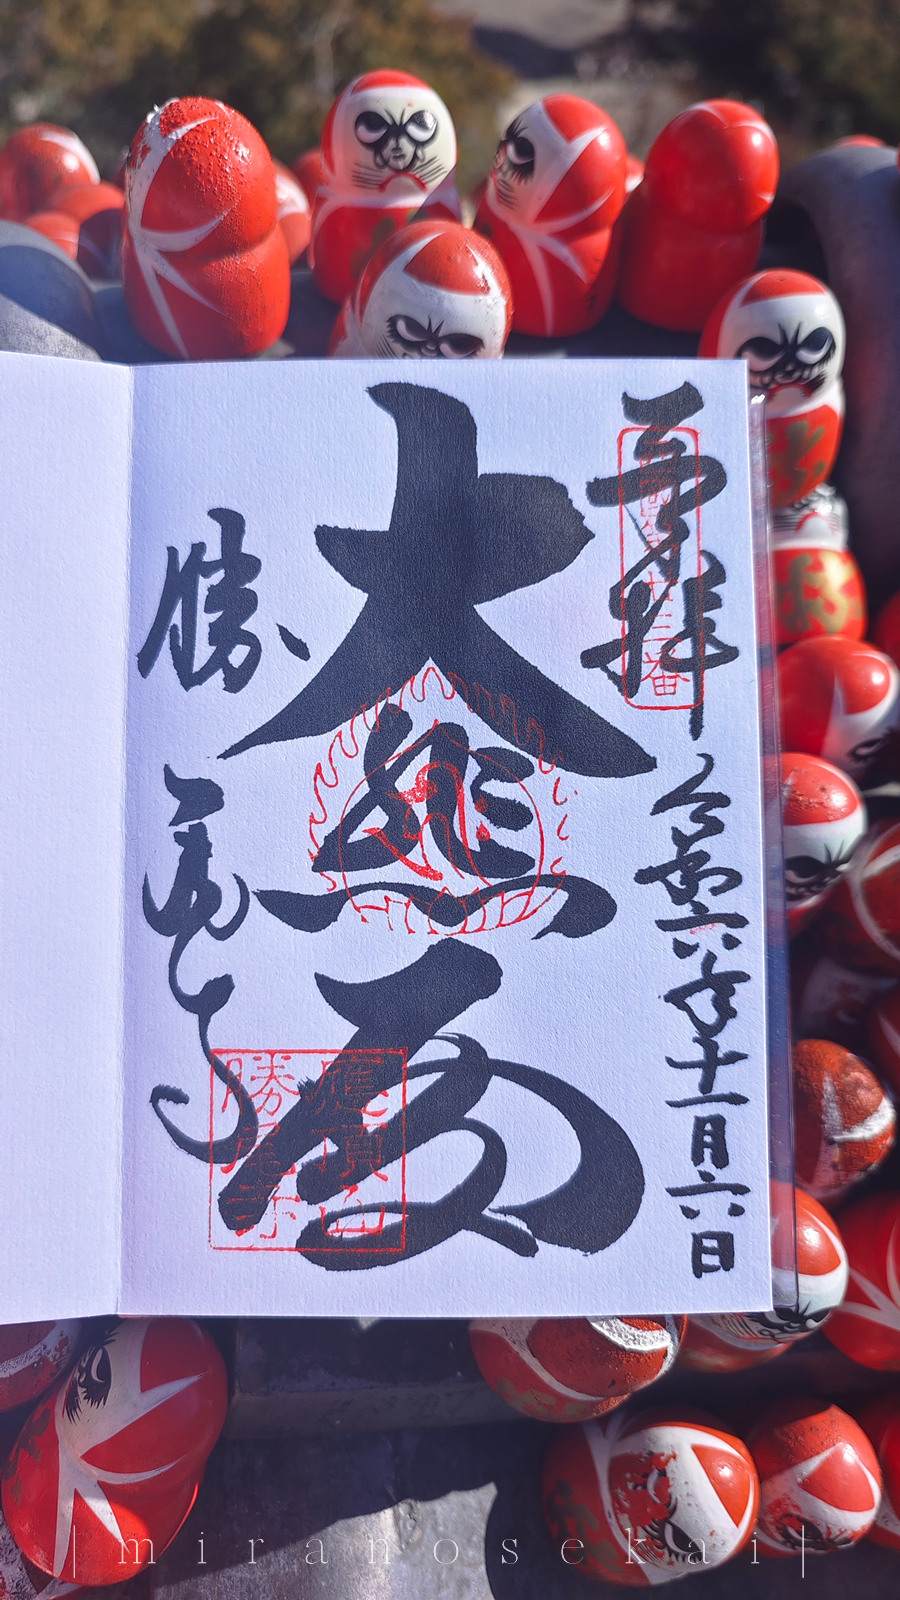 奉拝
西國第廿三番
令和六年十一月六日
大悲殿
勝尾寺
應頂山
勝尾寺
|miranosekai|